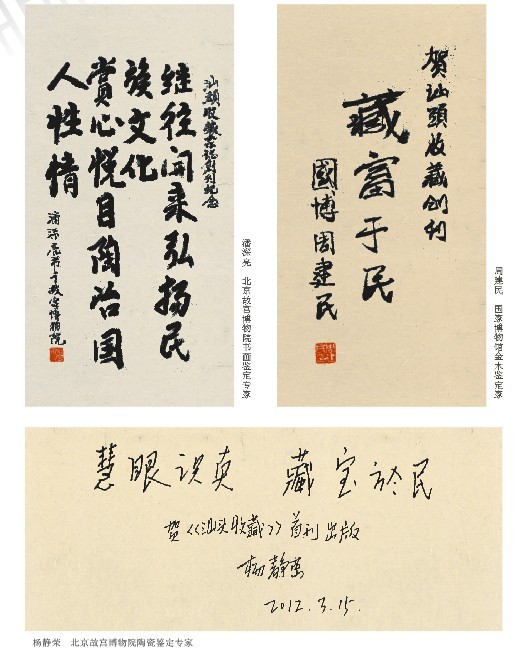 汕頭收藏杂誌創刊纪念
继往開来弘揚民
族文化
賞心悦目陶冶国
人性情
潘深亮书于故宫博物院
潘深亮 北京故宫博物院书画鉴定专家
賀汕頭收藏创刊
藏富于民
國博周建民
周建民 国家博物馆金木鉴定家
慧眼识真 藏宝於民
贺《汕头收藏》首刊出版
杨静荣
2012.3.15.
杨静荣 北京故宫博物院陶瓷鉴定专家